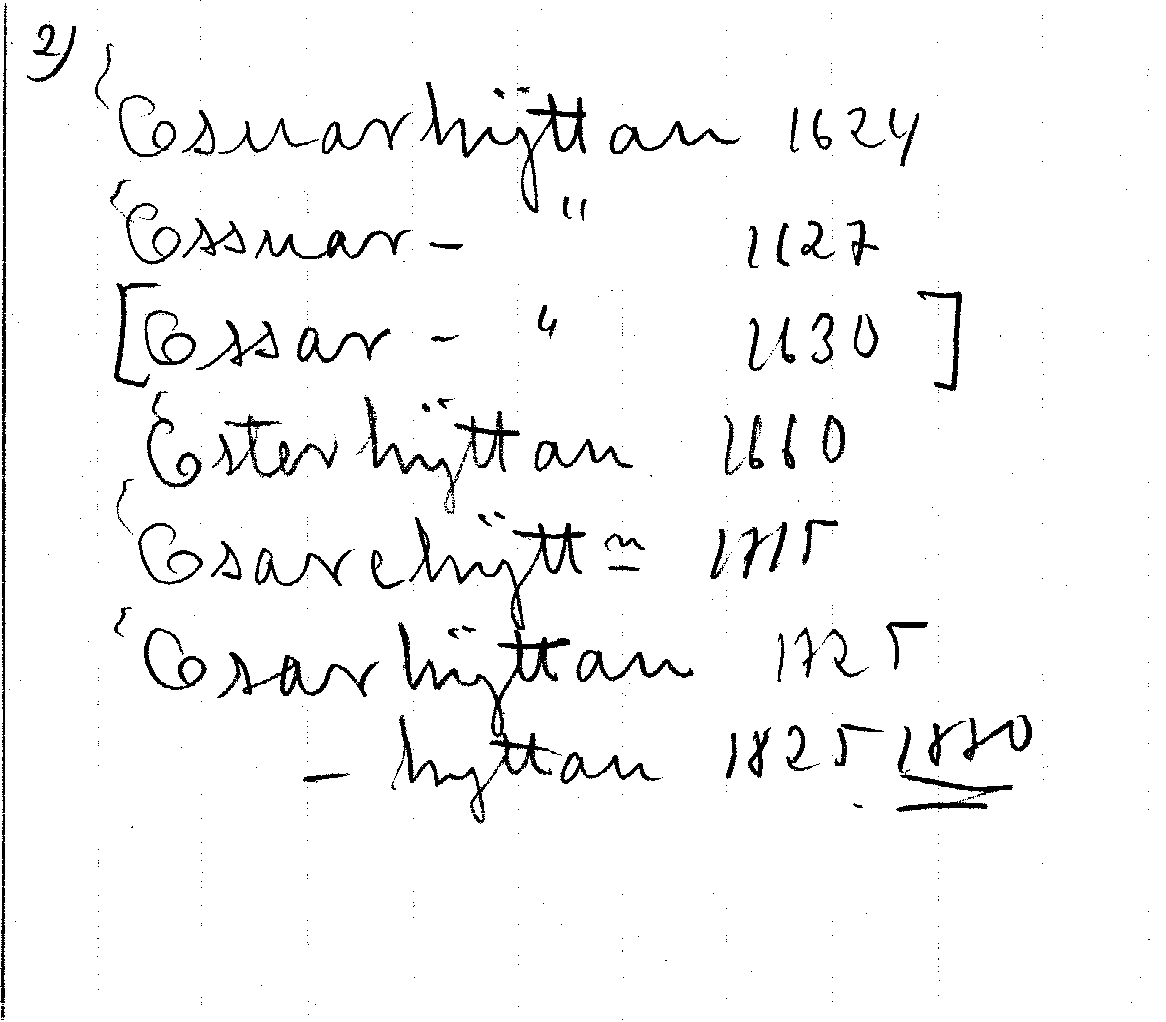 2)
Esuarhÿttan 1624
Essuar - " 1627
[Essar - " 1630]
Esterhÿttan 1660
Esarehÿttn 1715
Esarhÿttan 1725
- hyttan 1825 1880